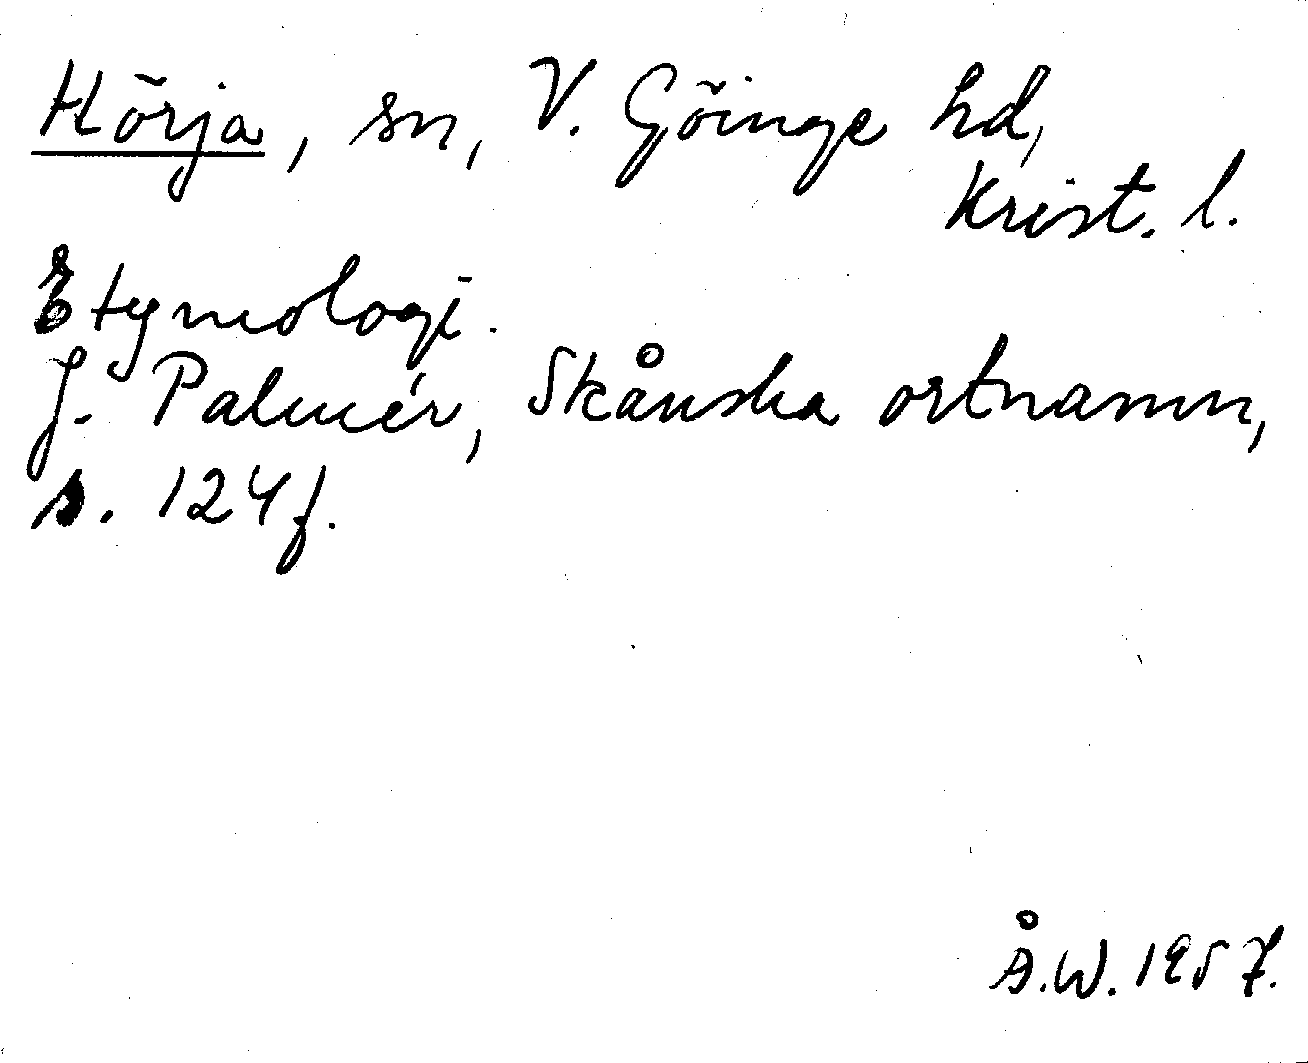 Hörja, sn, V. Göinge hd,
Krist. l.
Etymologi.
J. Palmér, Skånska ortnamn,
s. 124 f.
Å.W. 1957.